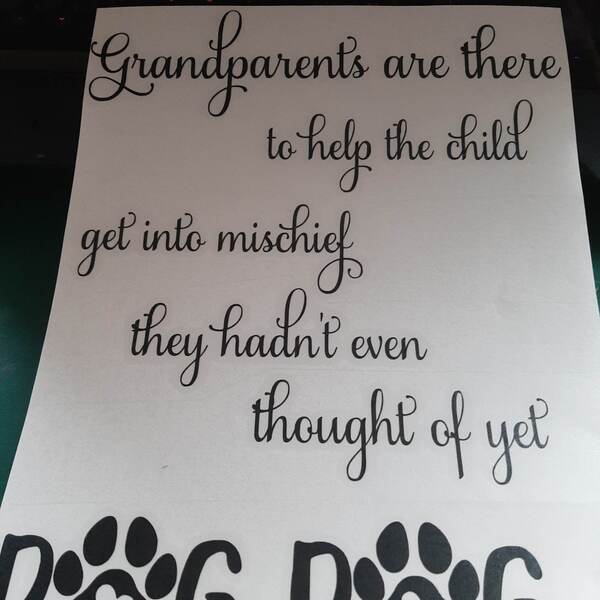 Grandparents are there
to help the child
get into mischief
they hadn't even
thought of yet
DOG DOG